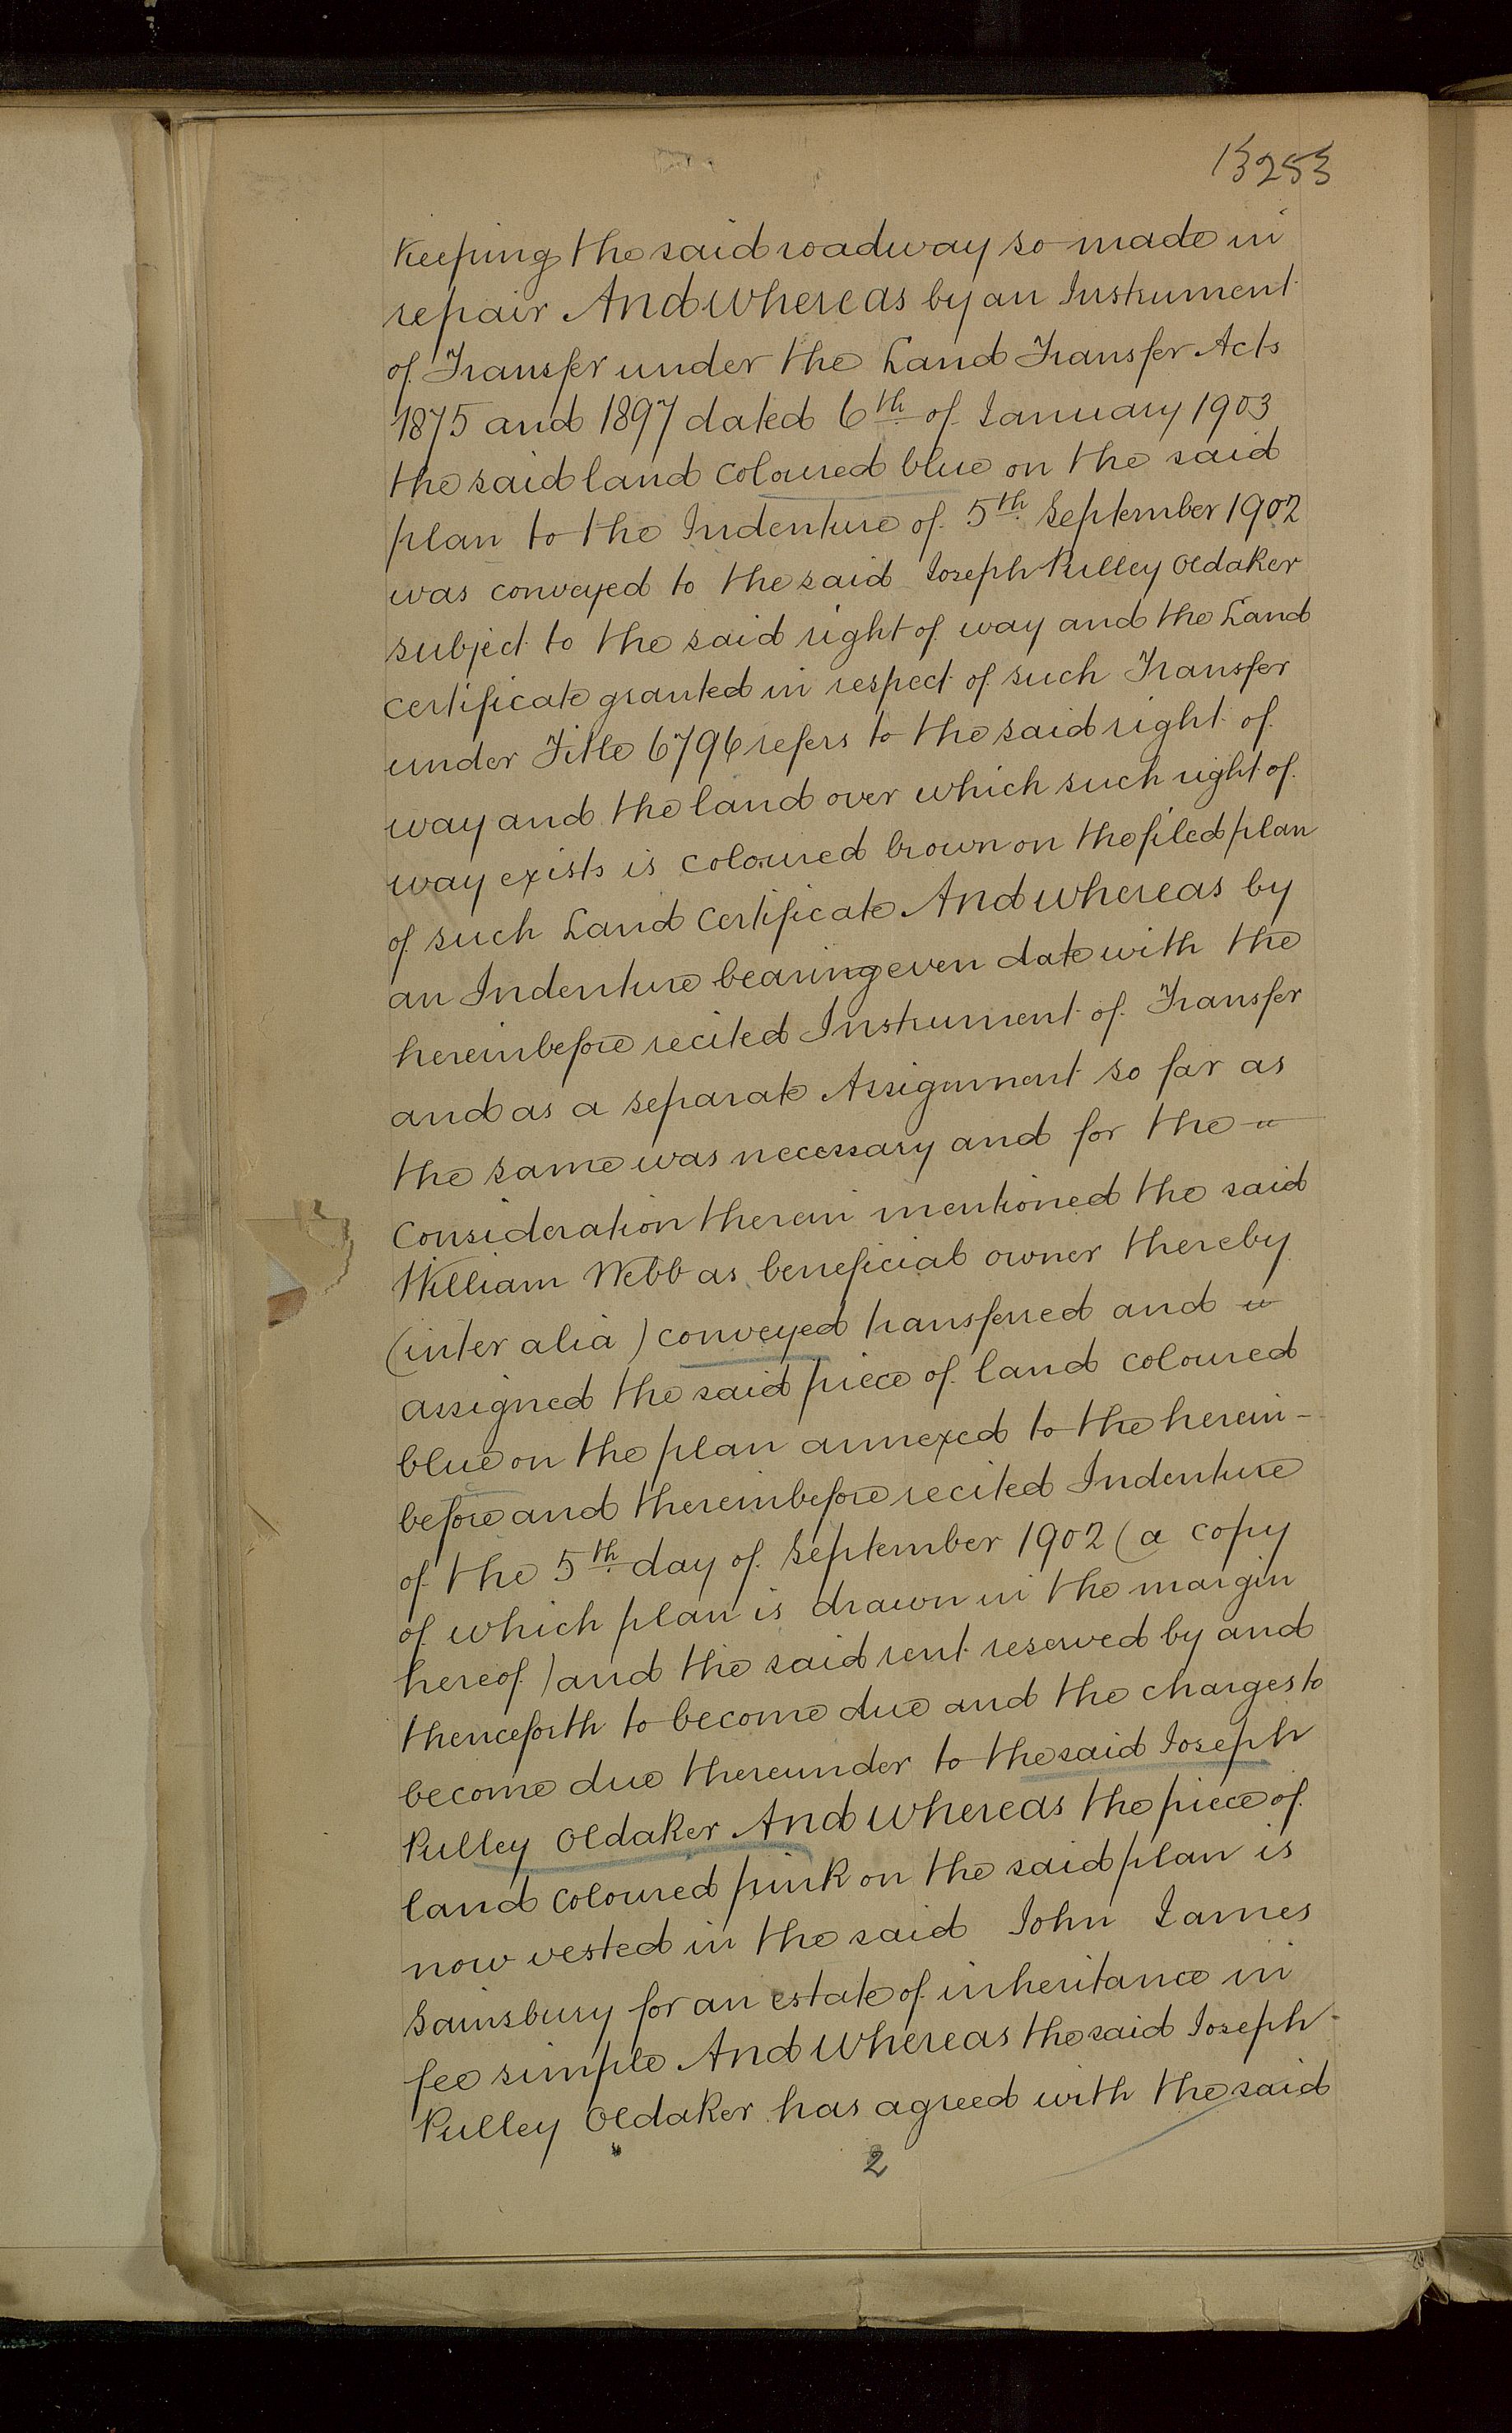 13253
Keeping the said roadway so made in
repair And whereas by an Instrument
of Transfer under the Land Transfer Acts
1875 and 1897 dated 6th of January 1903
the said land coloured blue on the said
plan to the Indenture of 5th September 1902
was conveyed to the said Joseph Pulley Oldaker
subject to the said right of way and the Land
certificate granted in respect of such Transfer
under Title 6796 refers to the said right of
way and the land over which such right of
way exists is coloured brown on the filed plan
of such Land Certificate And whereas by
an Indenture bearing even date with the
hereinbefore recited Instrument of Transfer
and as a separate Assignment so far as
the same was necessary and for the
consideration therein mentioned the said
William Webb as beneficial owner thereby
(inter alia) conveyed transferred and
assigned the said piece of land coloured
blue on the plan annexed to the herein-
before and thereinbefore recited Indenture
of the 5th day of September 1902 (a copy
of which plan is drawn in the margin
hereof) and the said rent reserved by and
thenceforth to become due and the charges to
become due thereunder to the said Joseph
Pulley Oldaker And whereas the piece of
land coloured pink on the said plan is
now vested in the said John James
Sainsbury for an estate of inheritance in
fee simple And whereas the said Joseph
Pulley Oldaker has agreed with the said
2